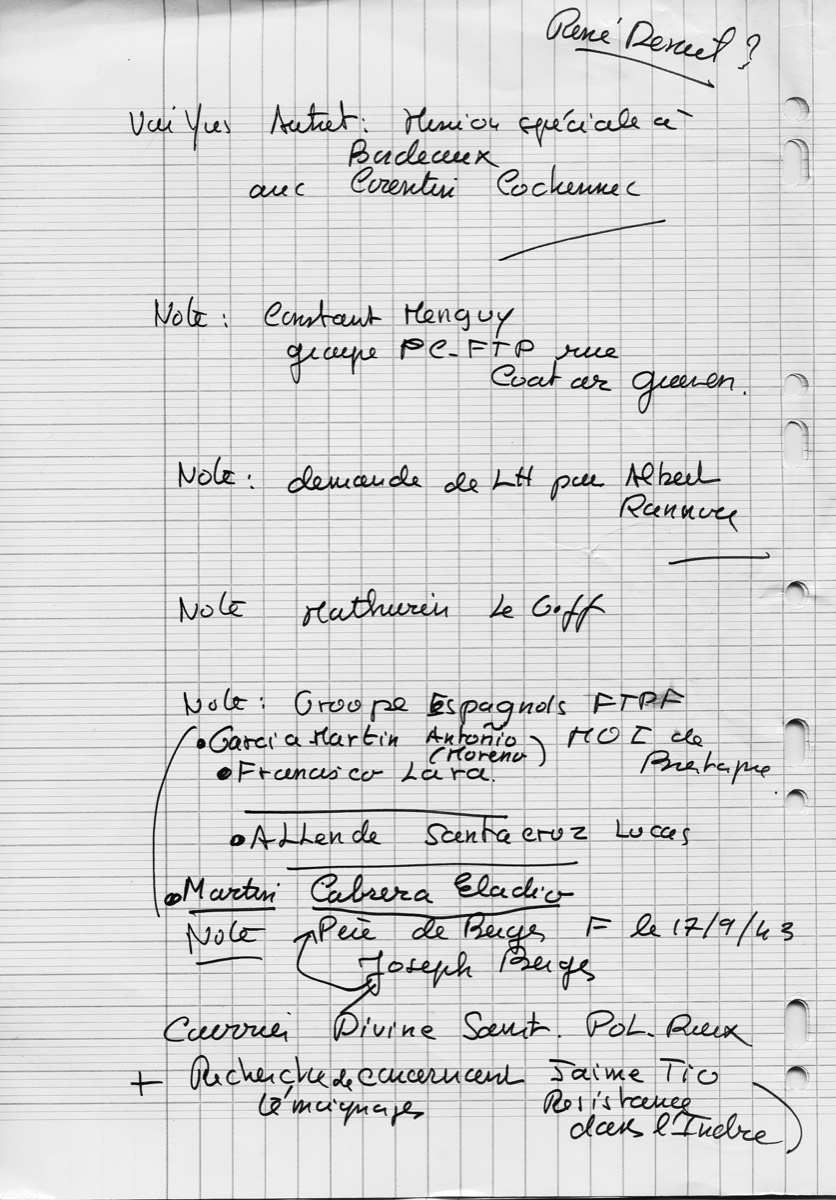 René ?
Voir Yves Autret : Mission spéciale à
Bordeaux
avec Corentin Cochennec
Note : Constant Menguy
groupe PC-FTP rue
Coat ar Gueven.
Note : demande de LH par Albert
Rannou
Note Mathurin Le Goff
Note : Groupe Espagnols FTPF
• Garcia Martin Antoñio MOI de
(Moreno) Bretagne
• Francisco Lara.
• ALLende Santacruz Lucas
• Martin Cabrera Eladio
Note Père de Berges F le 17/9/43
Joseph Berges
Courrier Divine Saint. Pol. Roux
+ Recherche de concernant Jaime Tio
témoignages Résistance
dans l'Indre